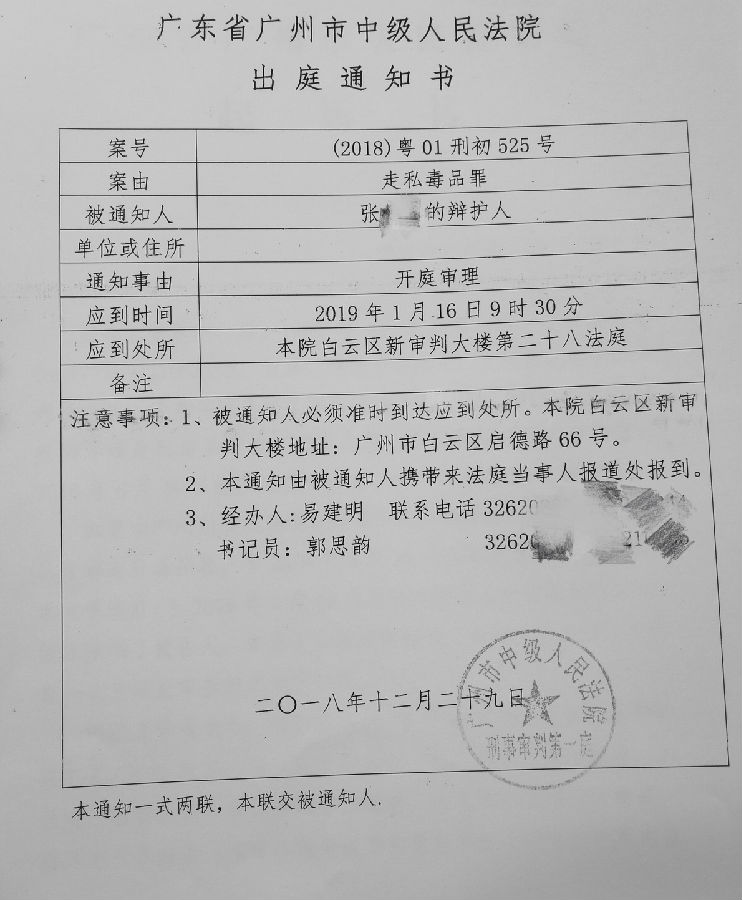 广东省广州市中级人民法院
出庭通知书
案号 (2018)粤01刑初525号
案由 走私毒品罪
被通知人 张 的辩护人
单位或住所
通知事由 开庭审理
应到时间 2019年1月16日9时30分
应到处所 本院白云区新审判大楼第二十八法庭
备注
注意事项：1、被通知人必须准时到达应到处所。本院白云区新审
判大楼地址：广州市白云区启德路66号。
2、本通知由被通知人携带来法庭当事人报道处报到。
3、经办人:易建明 联系电话32620
书记员：郭思韵 3262
广州市中级人民法院
二〇一八年十二月二十九日
刑事审判第一庭
本通知一式两联，本联交被通知人.